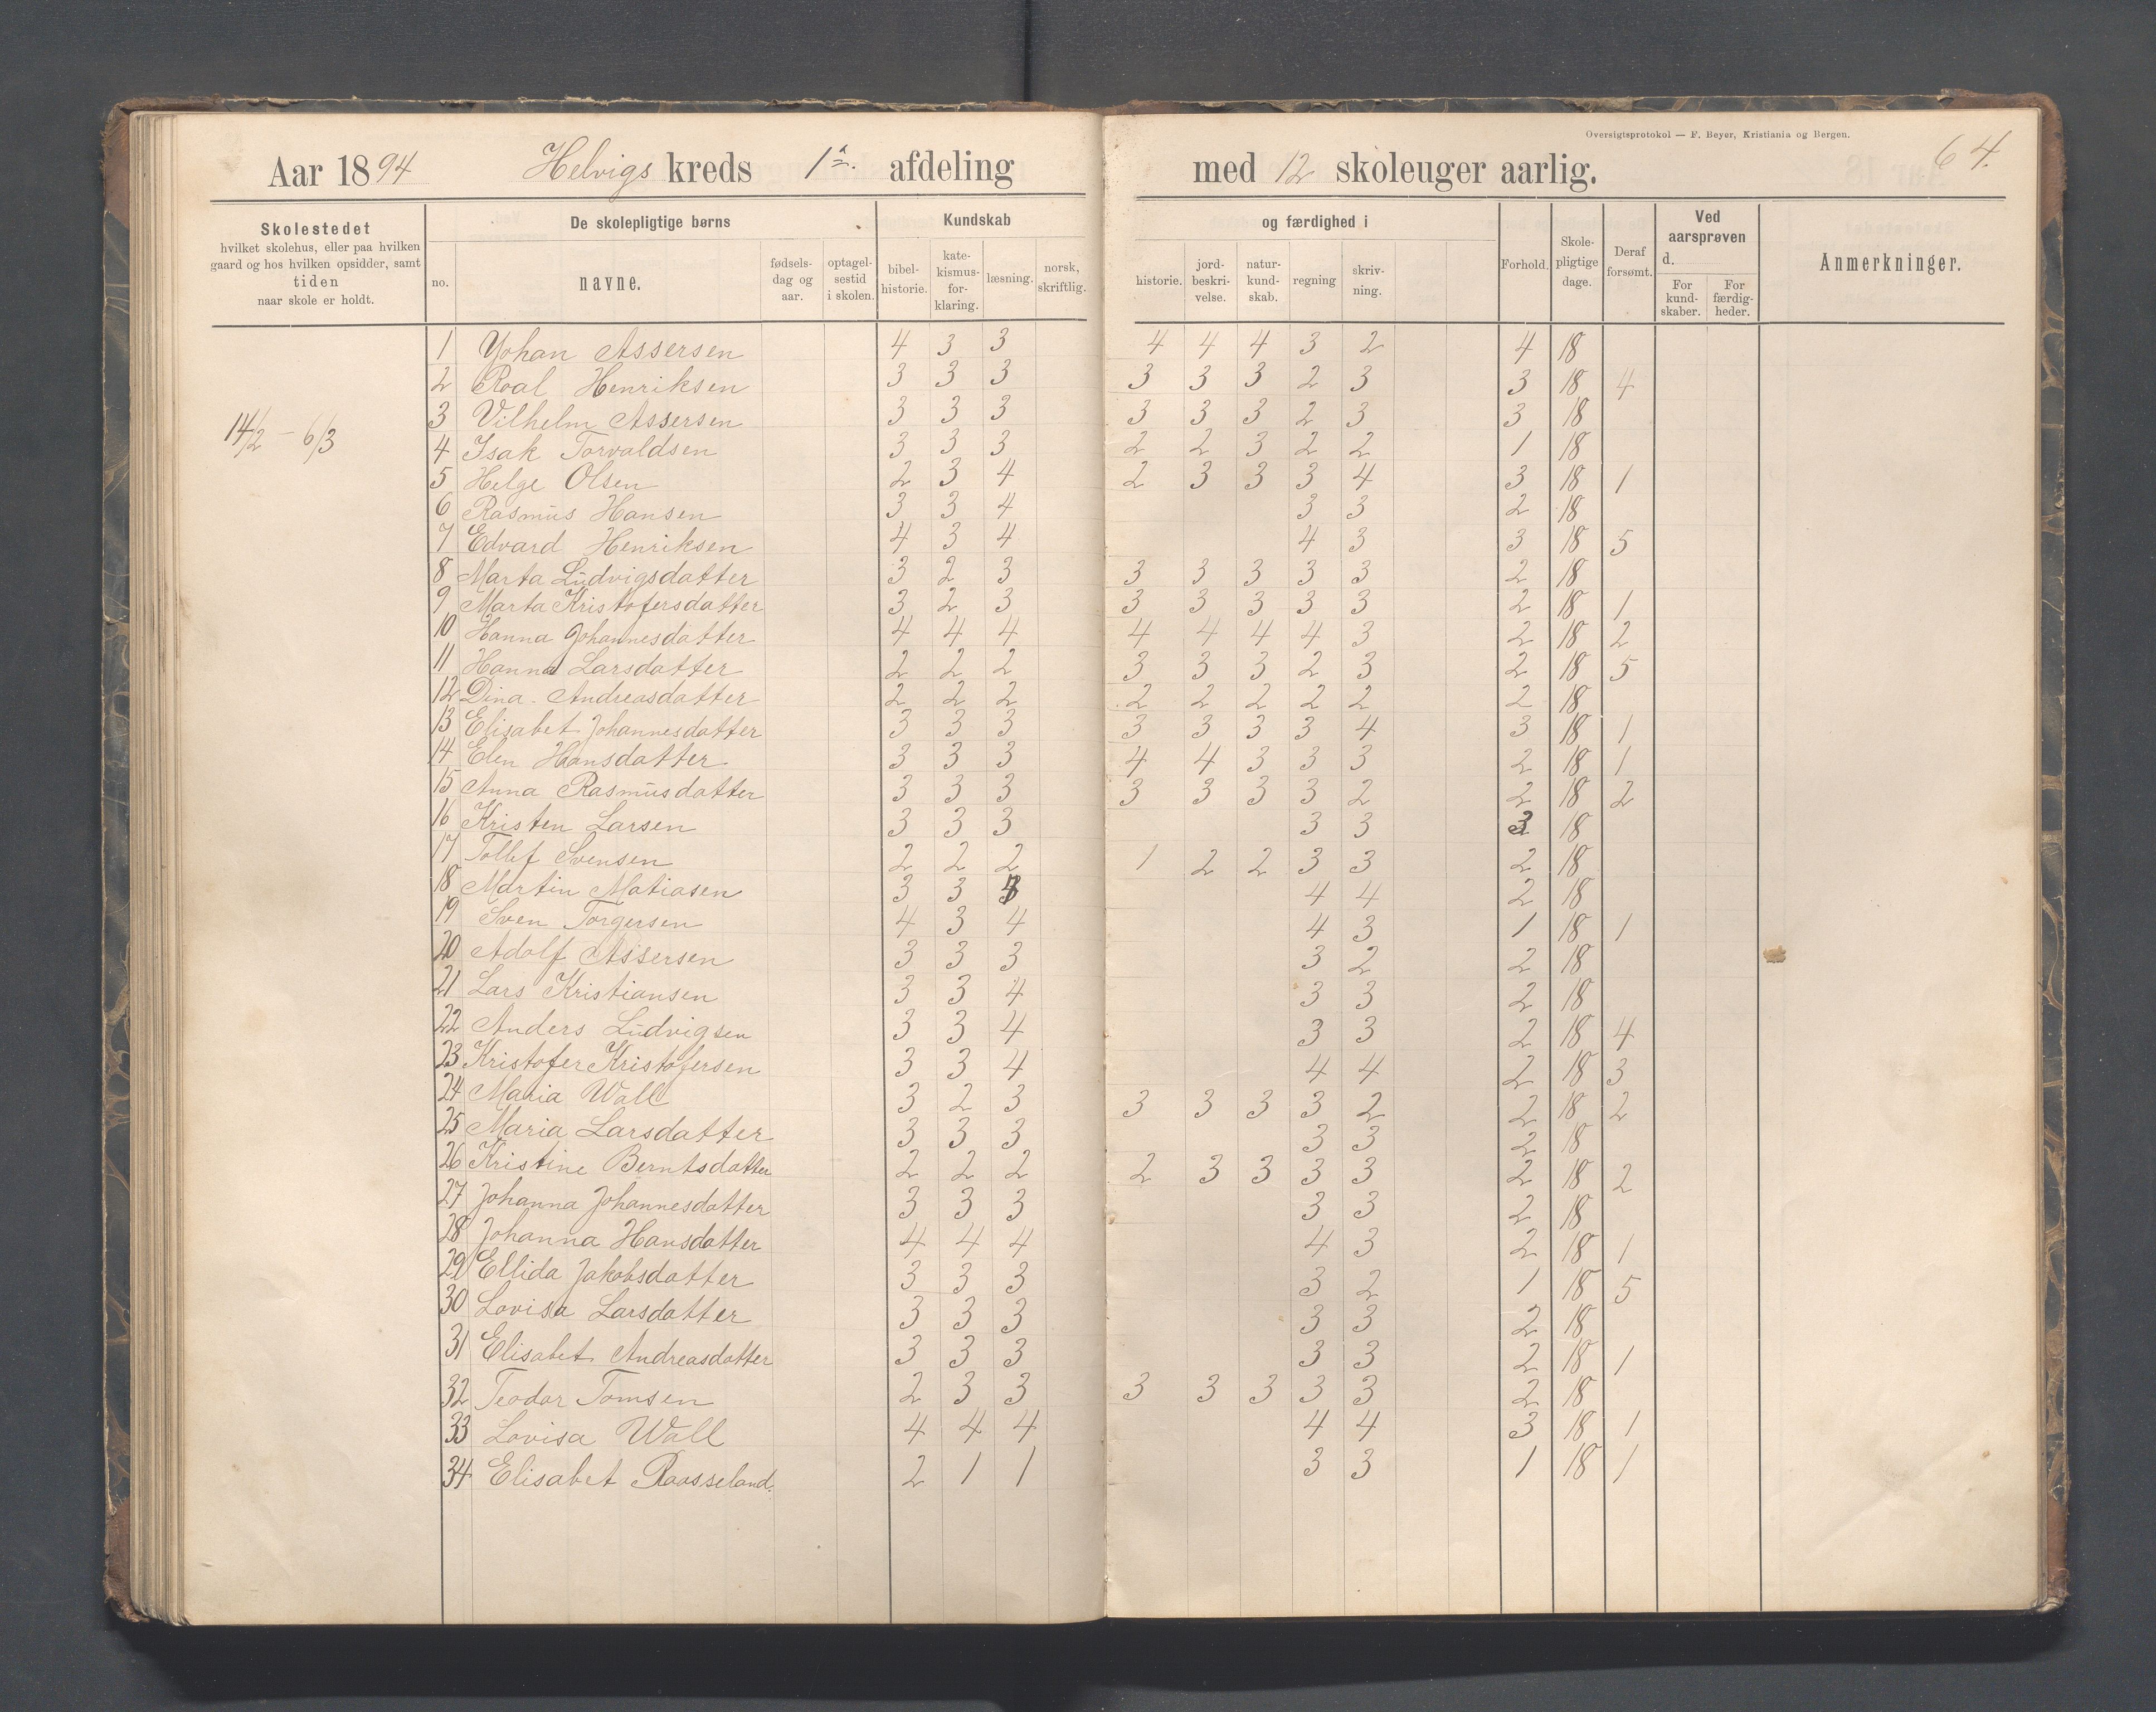 Oversigtsprotokol — F. Beyer, Kristiania og Bergen.
64.
Aar 1894 Helvigs kreds 1ste. afdeling med 12 skoleuger aarlig.
Skolestedet hvilket skolehus, eller paa hvilken gaard og hos hvilken opsidder, samt tiden naar skole er holdt.
De skolepligtige børns
no. navne. fødsels-dag og aar. optagel-sestid i skolen.
Kundskab og færdighed i
bibel-historie. kate-kismus-for-klaring. læsning. norsk, skriftlig. historie. jord-beskri-velse. natur-kund-skab. regning skriv-ning.
Forhold. Skole-pligtige dage. Deraf forsømt.
Ved aarsprøven d.
For kund-skaber. For færdig-heder.
Anmerkninger.
14/2 – 6/3
1 Johan Assersen 4 3 3 4 4 4 3 2 4 18
2 Roal Henriksen 3 3 3 3 3 3 2 3 3 18 4
3 Vilhelm Assersen 3 3 3 3 3 3 2 3 3 18
4 Isak Torvaldsen 3 3 3 2 2 3 2 2 1 18
5 Helge Olsen 2 3 4 2 3 3 3 4 3 18 1
6 Rasmus Hansen 3 3 4 3 3 2 18
7 Edvard Henriksen 4 3 4 4 3 3 18 5
8 Marta Ludvigsdatter 3 2 3 3 3 3 3 3 2 18
9 Marta Kristofersdatter 3 2 3 3 3 3 3 3 2 18 1
10 Hanna Johannesdatter 4 4 4 4 4 4 4 3 2 18 2
11 Hanna Larsdatter 2 2 2 3 3 3 2 3 2 18 5
12 Dina Andreasdatter 2 2 2 2 2 2 2 2 2 18
13 Elisabet Johannesdatter 3 3 3 3 3 3 3 4 3 18 1
14 Elen Hansdatter 3 3 3 4 4 3 3 3 2 18 1
15 Anna Rasmusdatter 3 3 3 3 3 3 3 2 2 18 2
16 Kristen Larsen 3 3 3 3 3 3 18
17 Tollef Svensen 2 2 2 1 2 2 3 3 2 18
18 Martin Matiasen 3 3 3 4 4 2 18
19 Sven Torgersen 4 3 4 4 3 1 18 1
20 Adolf Assersen 3 3 3 3 2 2 18
21 Lars Kristiansen 3 3 4 3 3 2 18
22 Anders Ludvigsen 3 3 4 3 3 2 18 4
23 Kristofer Kristofersen 3 3 4 4 4 2 18 3
24 Maria Wall 3 2 3 3 3 3 3 2 2 18 2
25 Maria Larsdatter 3 3 3 3 3 2 18
26 Kristine Berntsdatter 2 2 2 2 3 3 3 3 2 18 2
27 Johanna Johannesdatter 3 3 3 3 3 2 18
28 Johanna Hansdatter 4 4 4 4 3 2 18 1
29 Ellida Jakobsdatter 3 3 3 3 2 1 18 5
30 Lovisa Larsdatter 3 3 3 3 3 2 18
31 Elisabet Andreasdatter 3 3 3 3 3 2 18 1
32 Teodor Tomsen 2 3 3 3 3 3 3 3 2 18
33 Lovisa Wall 4 4 4 4 4 3 18 1
34 Elisabet Raasseland. 2 1 1 3 3 1 18 1